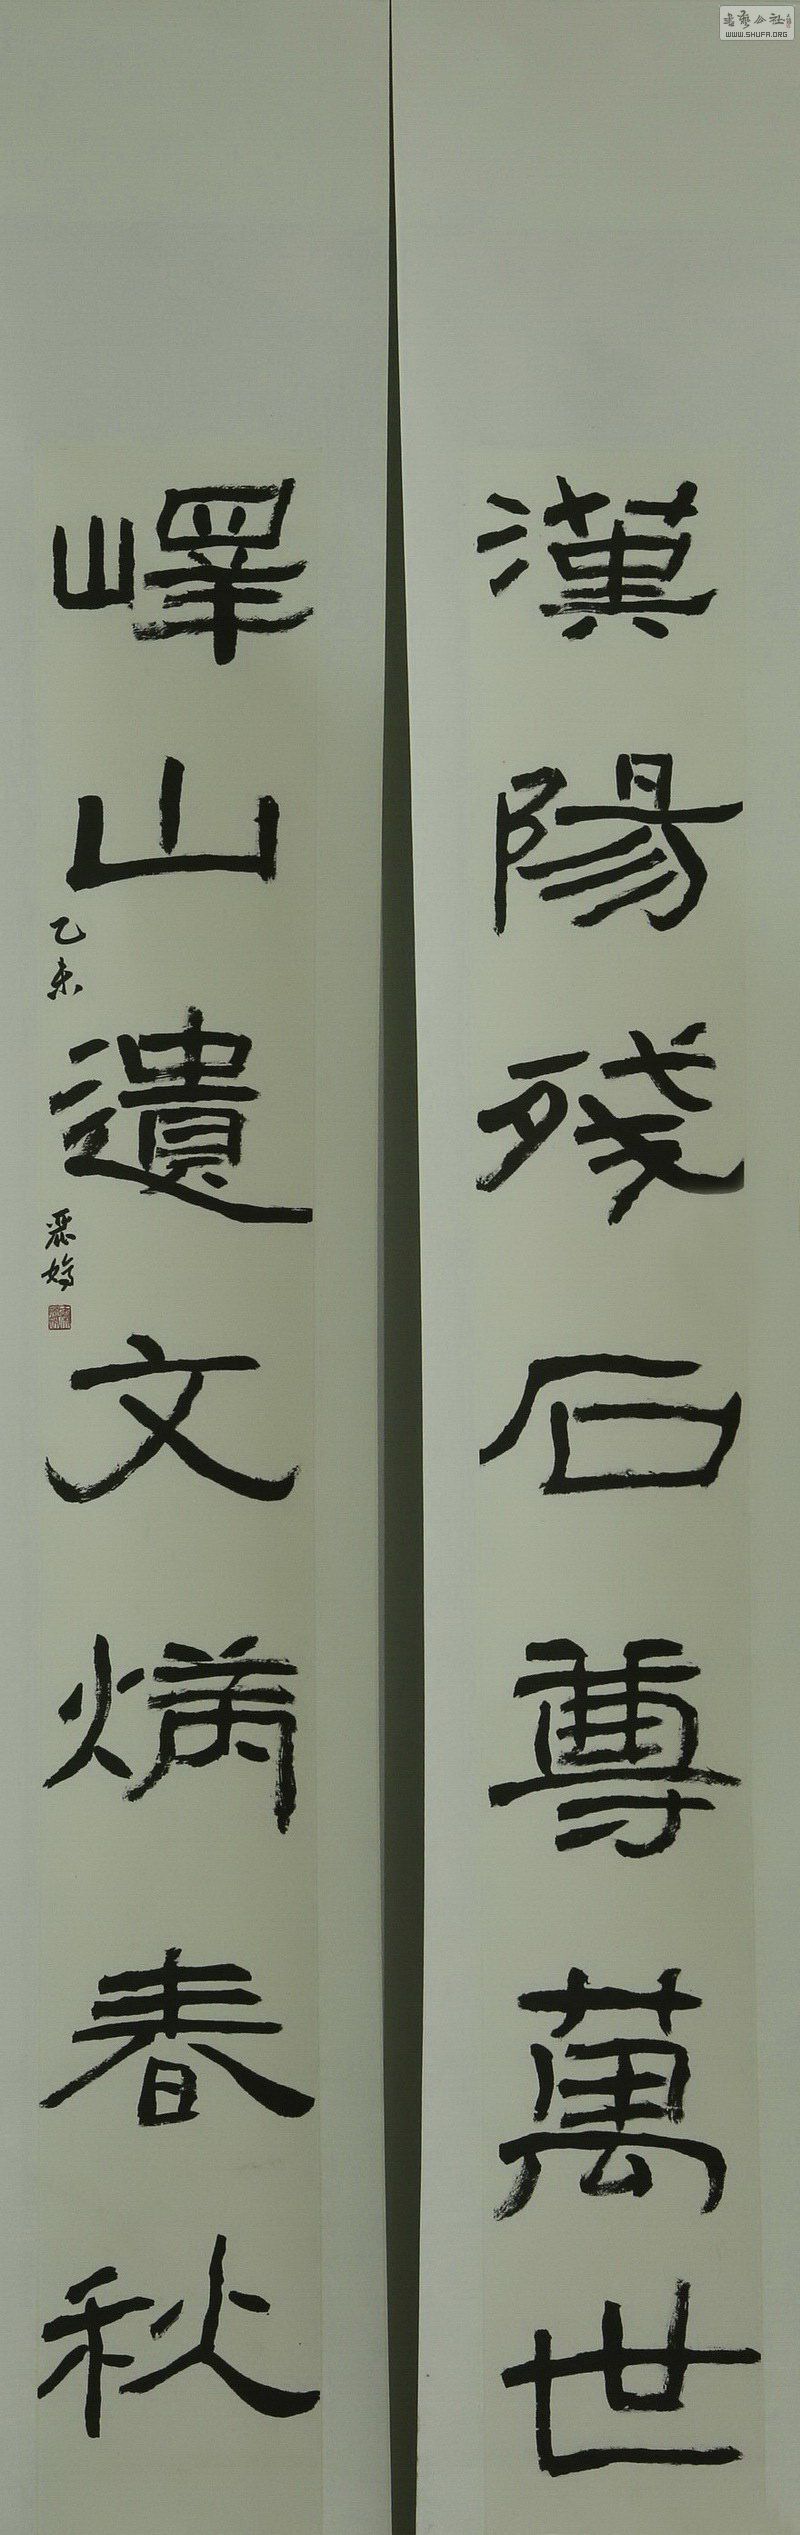 漢陽残石尊萬世
嶧山遺文炳春秋
乙未
書藝公社
WWW.SHUFA.ORG